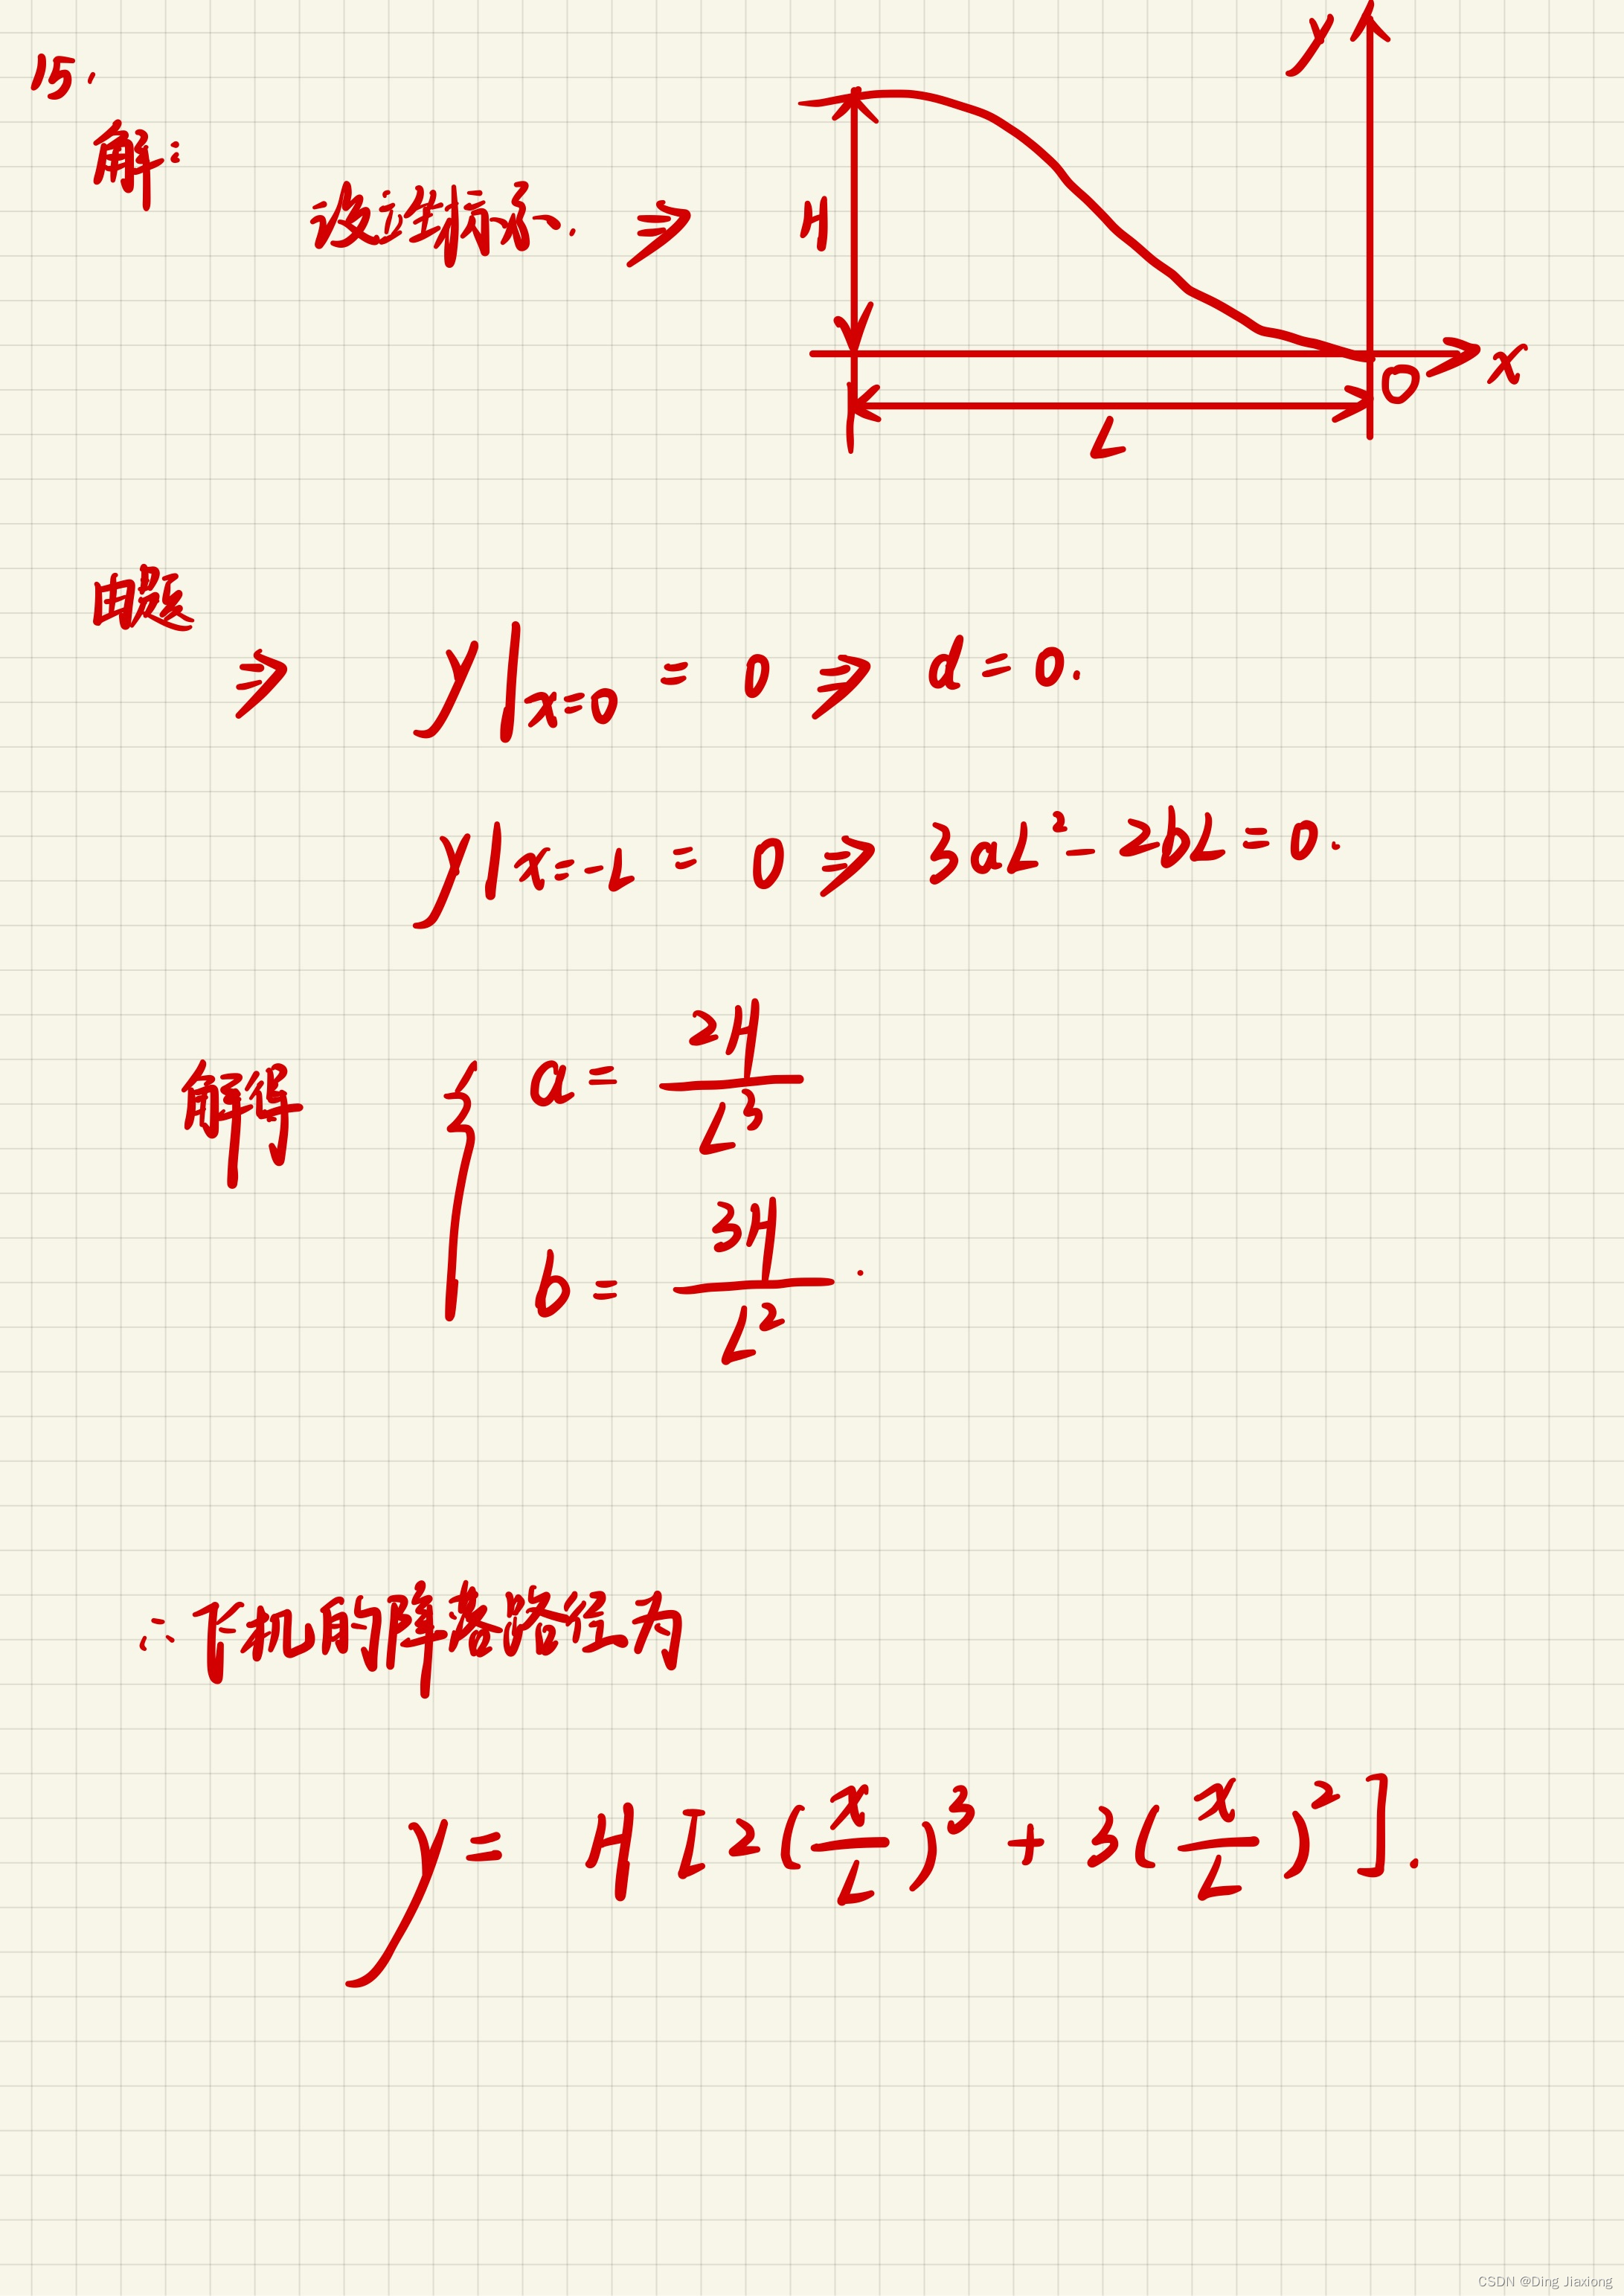 15.
解:
设立坐标系. ⇒
y
H
O
x
L
由题
⇒ y|x=0 = 0 ⇒ d = 0.
y|x=-L = 0 ⇒ 3aL² - 2bL = 0.
解得 { a = 2H/L³
b = 3H/L² .
∴飞机的降落路径为
y = H [2(x/L)³ + 3(x/L)²].
CSDN @Ding Jiaxiong